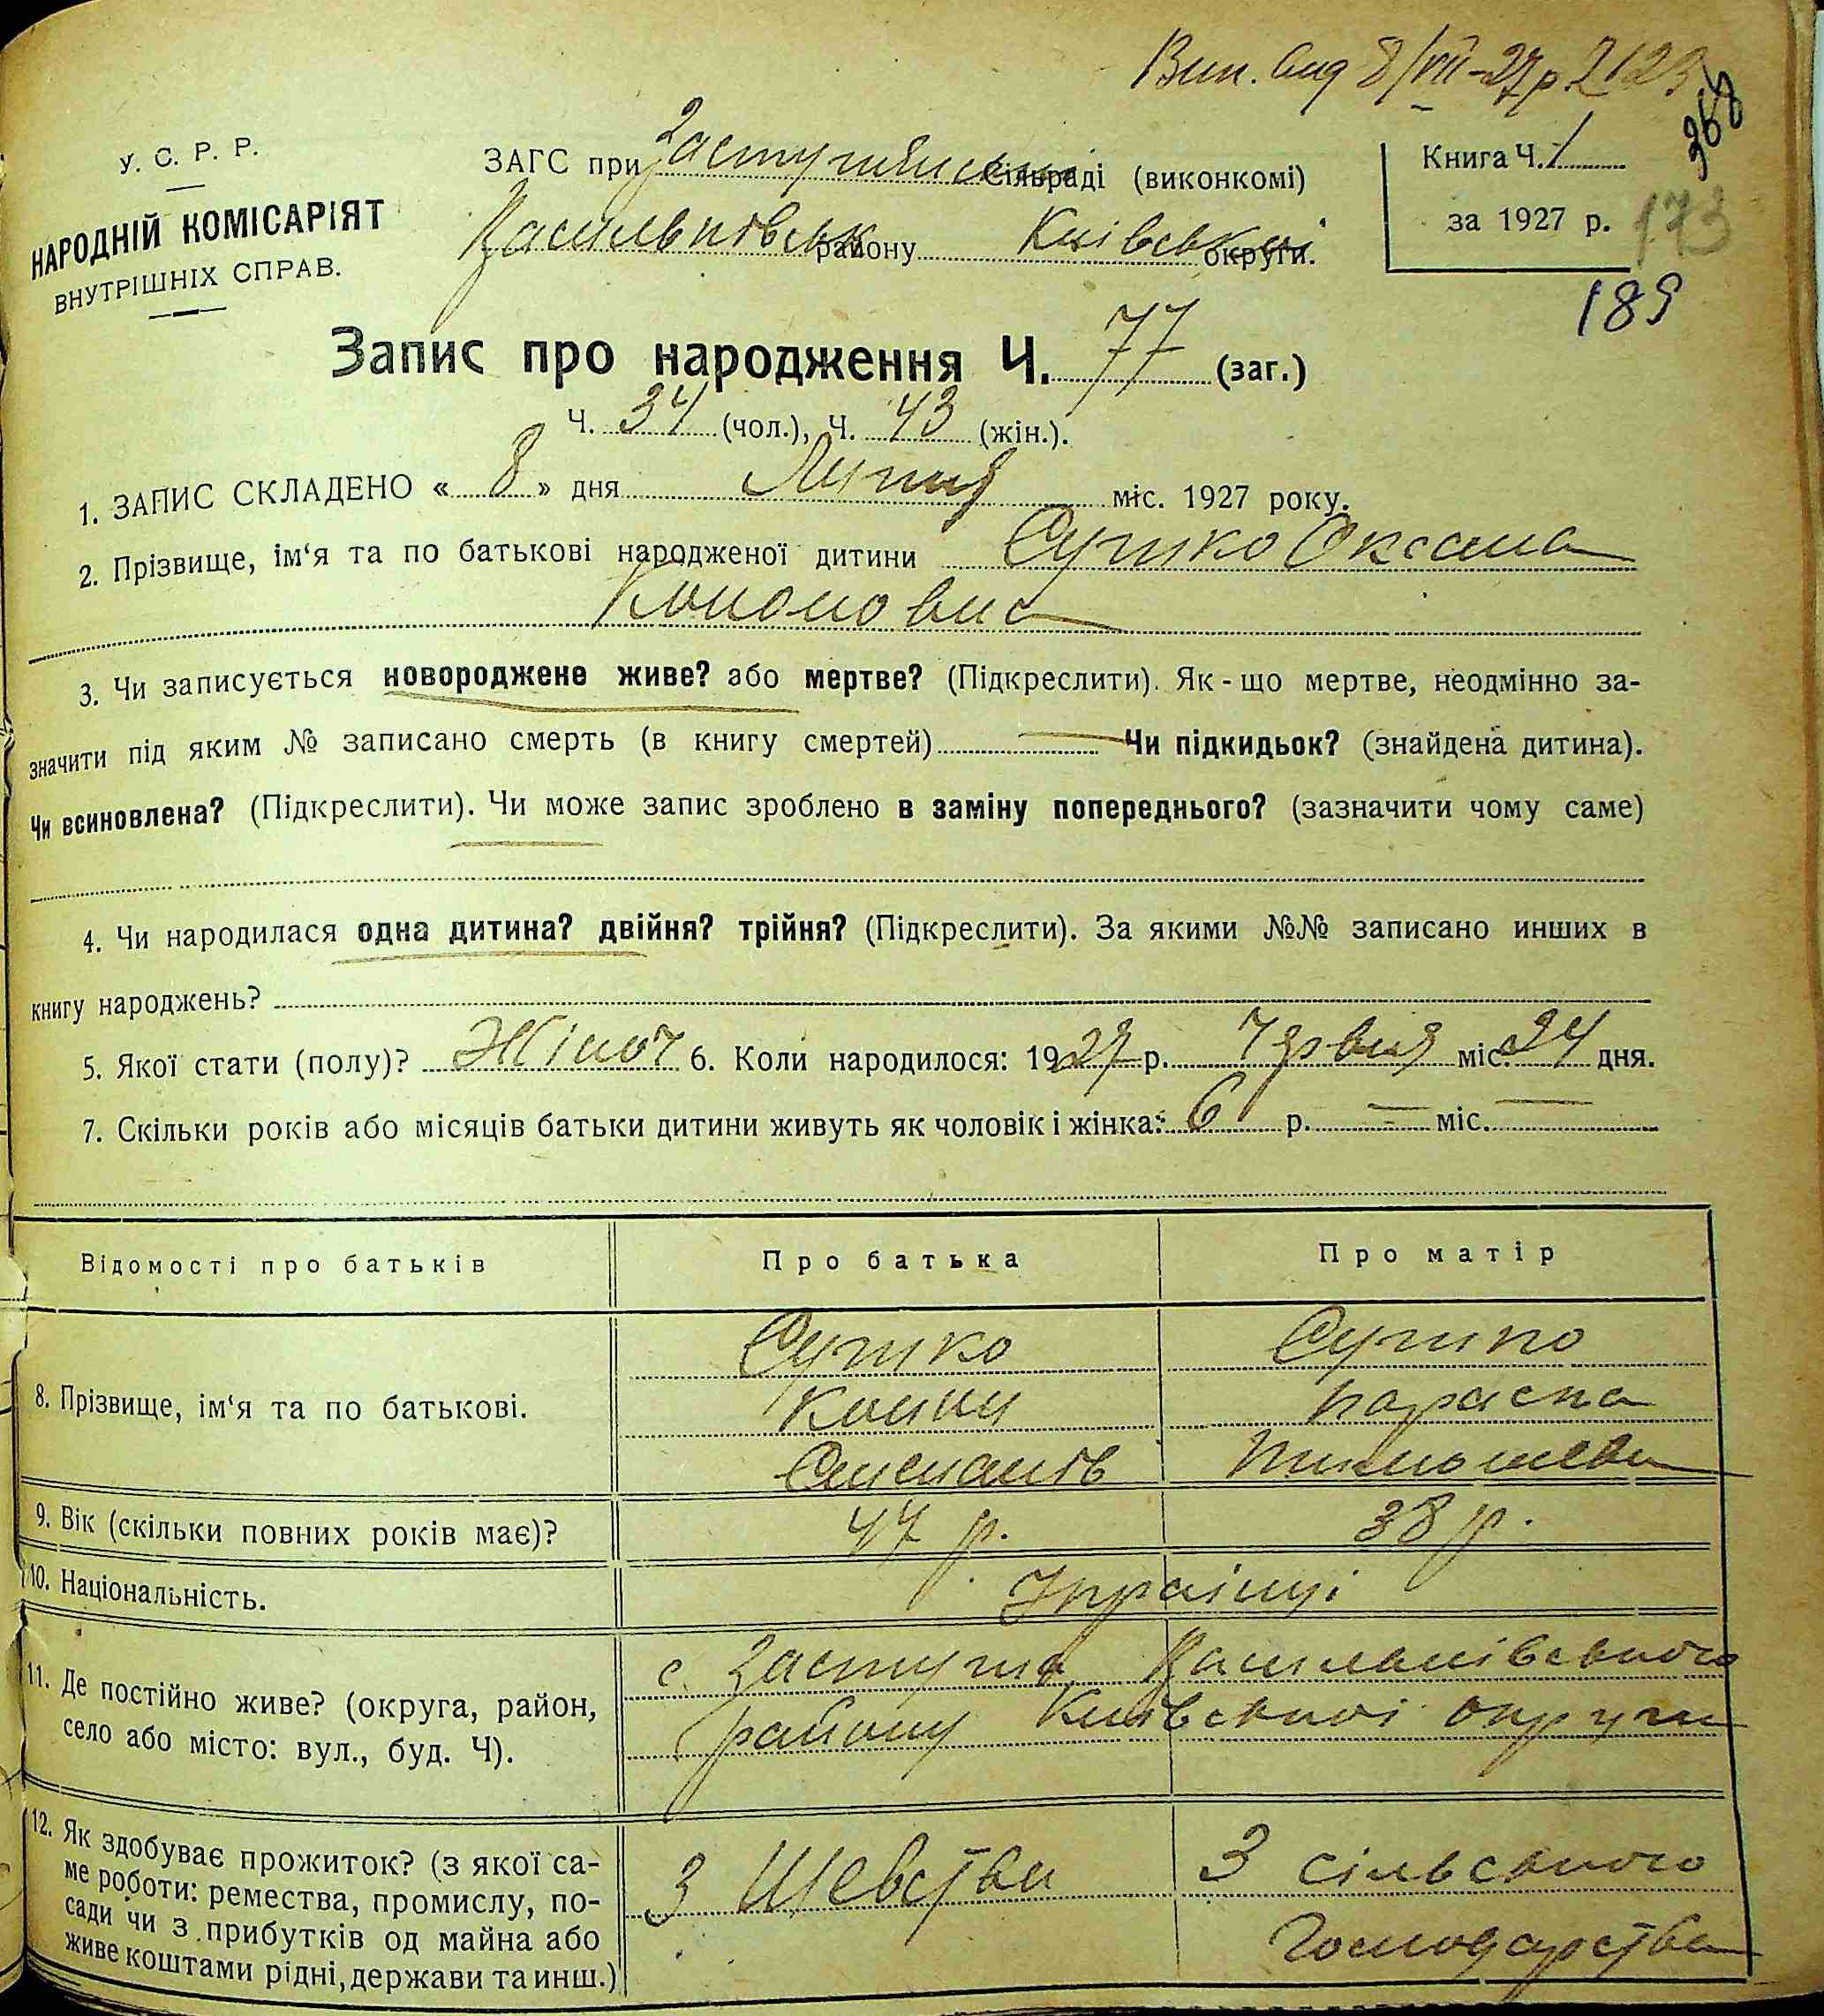 Вип. вид 8/VII-27р 2123
368
У. С. Р. Р.
НАРОДНІЙ КОМІСАРІЯТ
ВНУТРІШНІХ СПРАВ.
ЗАГС при Застугнянській Сільраді (виконкомі)
Васильківськ району Київської округи.
Книга Ч. 1
за 1927 р.
173
189
Запис про народження Ч. 77 (заг.)
Ч. 34 (чол.), Ч. 43 (жін.).
1. ЗАПИС СКЛАДЕНО « 8 » дня Липня міс. 1927 року.
2. Прізвище, ім‘я та по батькові народженої дитини Сушко Оксана
Кононовна
3. Чи записується новороджене живе? або мертве? (Підкреслити). Як-що мертве, неодмінно за-
значити під яким № записано смерть (в книгу смертей) — Чи підкидьок? (знайдена дитина).
Чи всиновлена? (Підкреслити). Чи може запис зроблено в заміну попереднього? (зазначити чому саме)
4. Чи народилася одна дитина? двійня? трійня? (Підкреслити). За якими №№ записано инших в
книгу народжень?
5. Якої стати (полу)? Жіноч 6. Коли народилося: 1927 р. Чэрвня міс. 24 дня.
7. Скільки років або місяців батьки дитини живуть як чоловік і жінка: 6 р. — міс. —
Відомості про батьків
Про батька
Про матір
8. Прізвище, ім‘я та по батькові.
Сушко
Конон
Сушко
Параска
9. Вік (скільки повних років має)?
47 р.
38 р.
10. Національність.
Українці
11. Де постійно живе? (округа, район,
село або місто: вул., буд. Ч).
с. Застугна Васильківського
району Київської округи
12. Як здобуває прожиток? (з якої са-
ме роботи: ремества, промислу, по-
сади чи з прибутків од майна або
живе коштами рідні, держави та инш.)
З Шевства
З сільського
Господарства